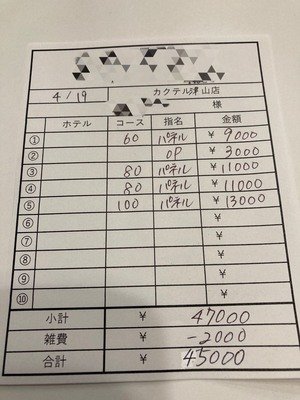 4/19 カクテル津山店
様
ホテル コース 指名 金額
① 60 パネル ¥9000
② OP ¥3000
③ 80 パネル ¥11000
④ 80 パネル ¥11000
⑤ 100 パネル ¥13000
⑥ ¥
⑦ ¥
⑧ ¥
⑨ ¥
⑩ ¥
小計 ¥ 47000
雑費 ¥ -2000
合計 ¥ 45000